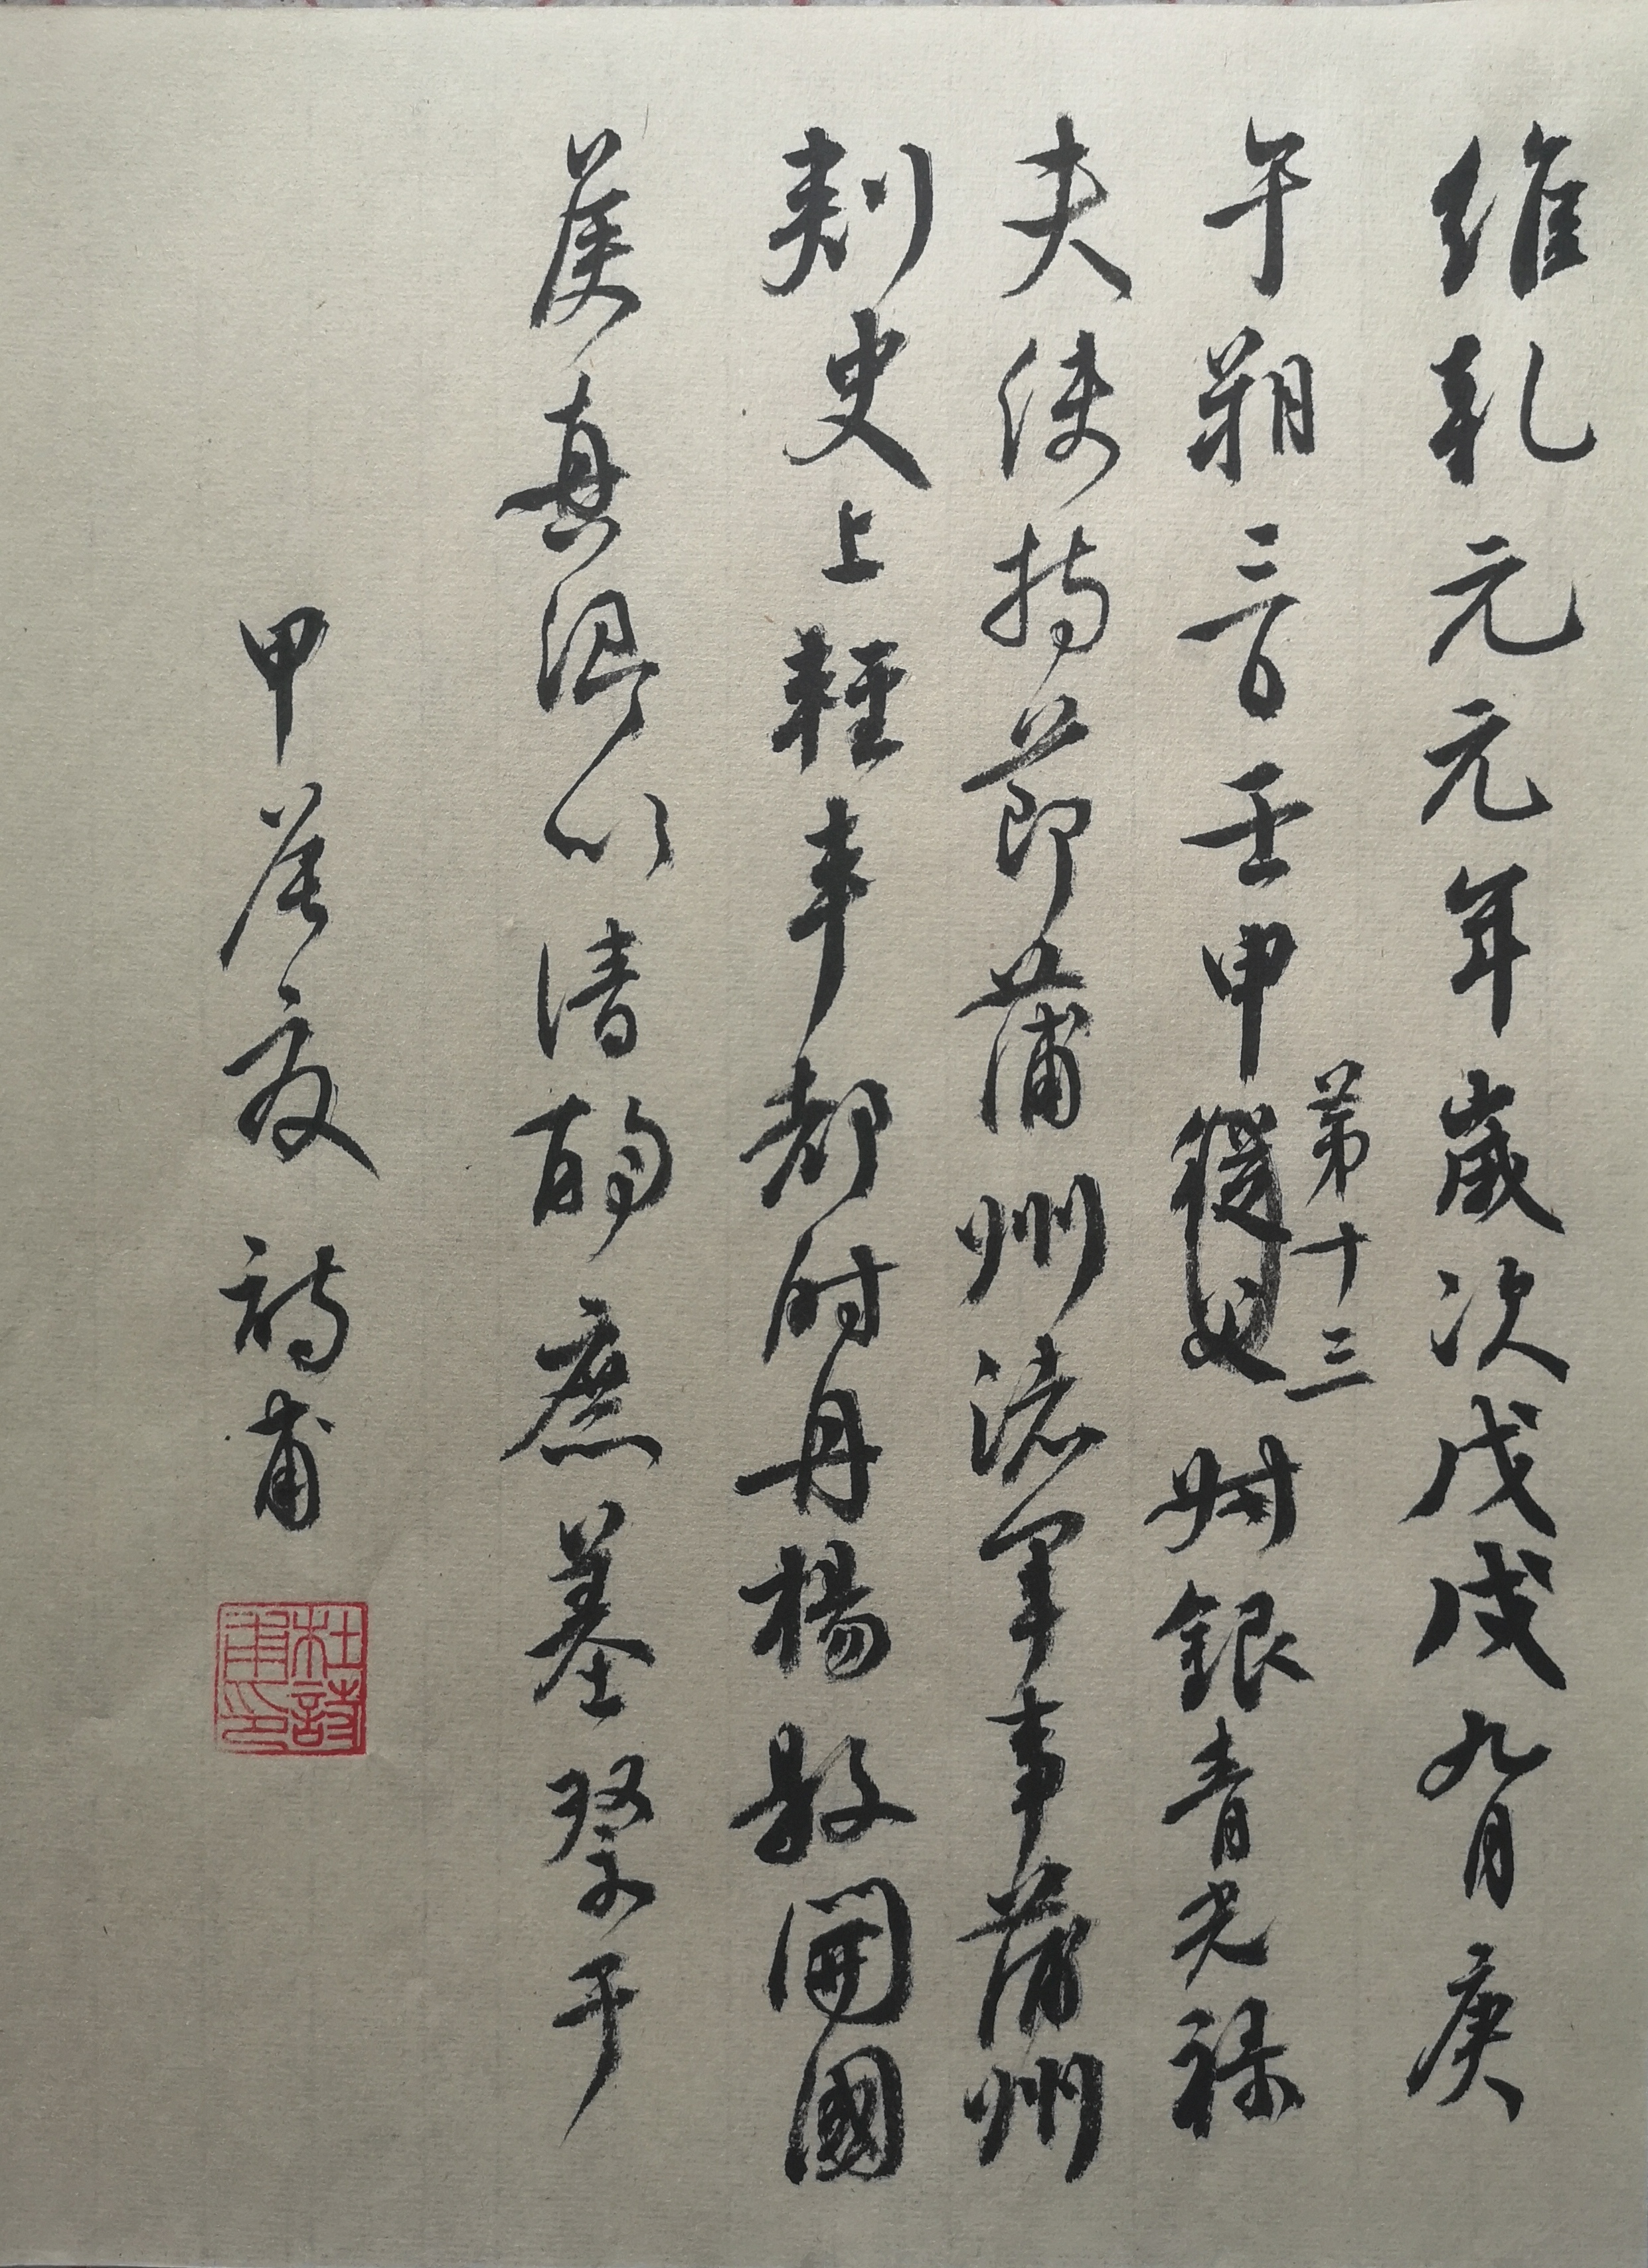 維乾元元年歲次戊戌九月庚
午朔三日壬申從父叔銀青光祿
第十三
夫使持節蒲州諸軍事蒲州
刺史上輕車都尉丹楊縣開國
侯真卿以清酌庶羞祭于
甲辰夏 詩甫
杜詩甫印